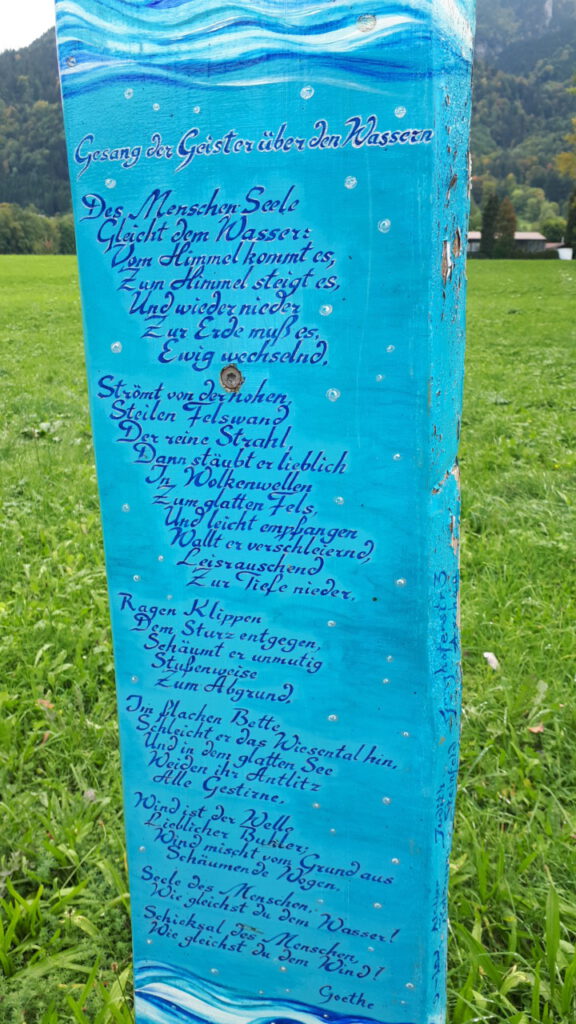 Gesang der Geister über den Wassern
Des Menschen Seele
Gleicht dem Wasser:
Vom Himmel kommt es,
Zum Himmel steigt es,
Und wieder nieder
Zur Erde muß es,
Ewig wechselnd.
Strömt von der hohen,
Steilen Felswand
Der reine Strahl,
Dann stäubt er lieblich
In Wolkenwellen
Zum glatten Fels,
Und leicht empfangen
Wallt er verschleiernd,
Leisrauschend
Zur Tiefe nieder.
Ragen Klippen
Dem Sturz entgegen,
Schäumt er unmutig
Stufenweise
Zum Abgrund.
Im flachen Bette
Schleicht er das Wiesental hin,
Und in dem glatten See
Weiden ihr Antlitz
Alle Gestirne.
Wind ist der Welle
Lieblicher Buhler;
Wind mischt vom Grund aus
Schäumende Wogen.
Seele des Menschen,
Wie gleichst du dem Wasser!
Schicksal des Menschen,
Wie gleichst du dem Wind!
Goethe